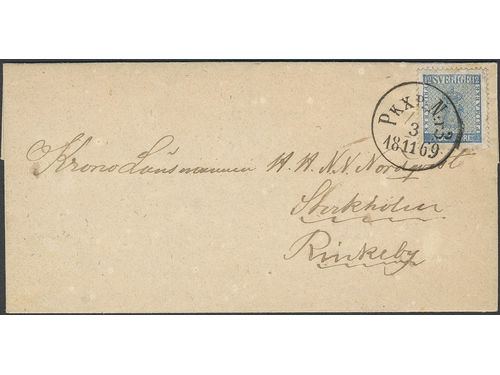 12 SVERIGE 12
PKXP. N. 13
3
18 11 69
Krono Länsmannen H. H. N. N. Nordqvist
Stockholm
Rinkeby